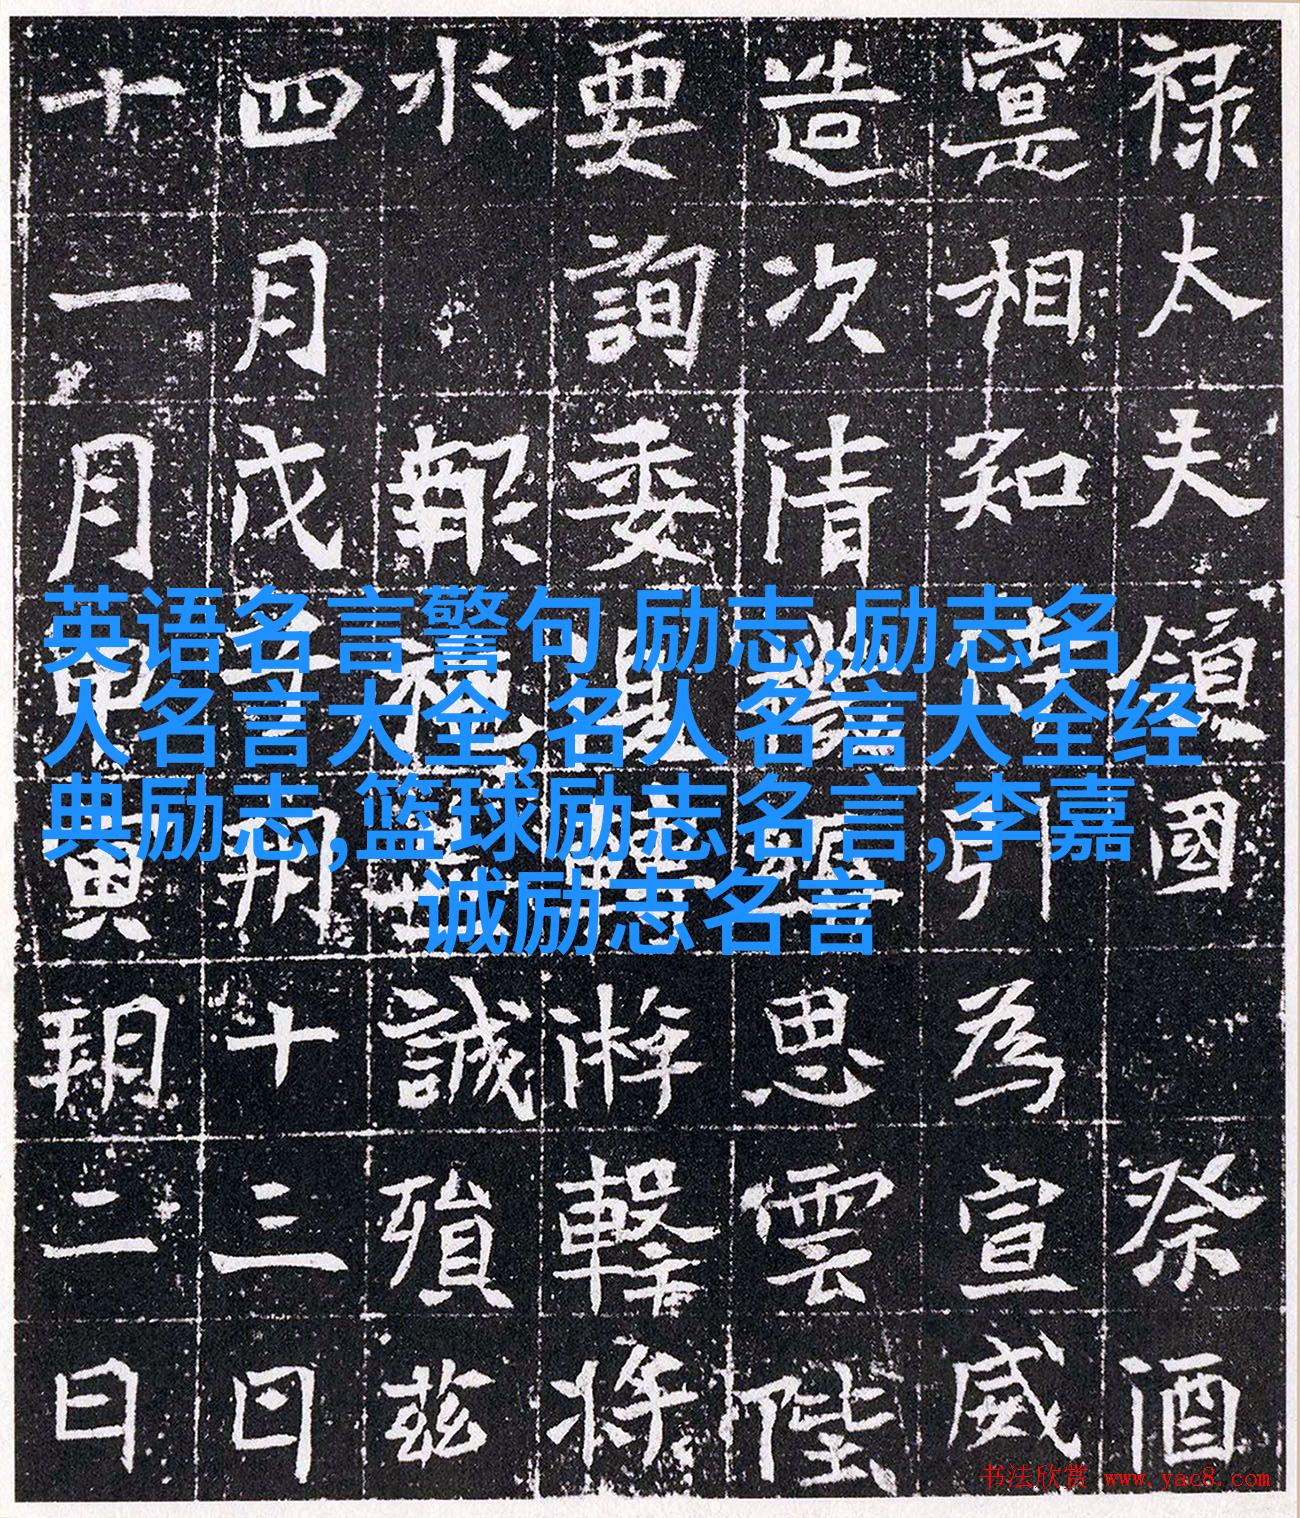 英语名言警句 励志,励志名
人名言大全,名人名言大全经
典励志,篮球励志名言,李嘉
诚励志名言
禄太夫領國祭酒
寔相知引為宣威
造次清思雲陛
要詢委游擊將
水報誠殞茲
四月戊子朔十三日
十一月甲寅朔二日
书法欣赏 www.yac8.com